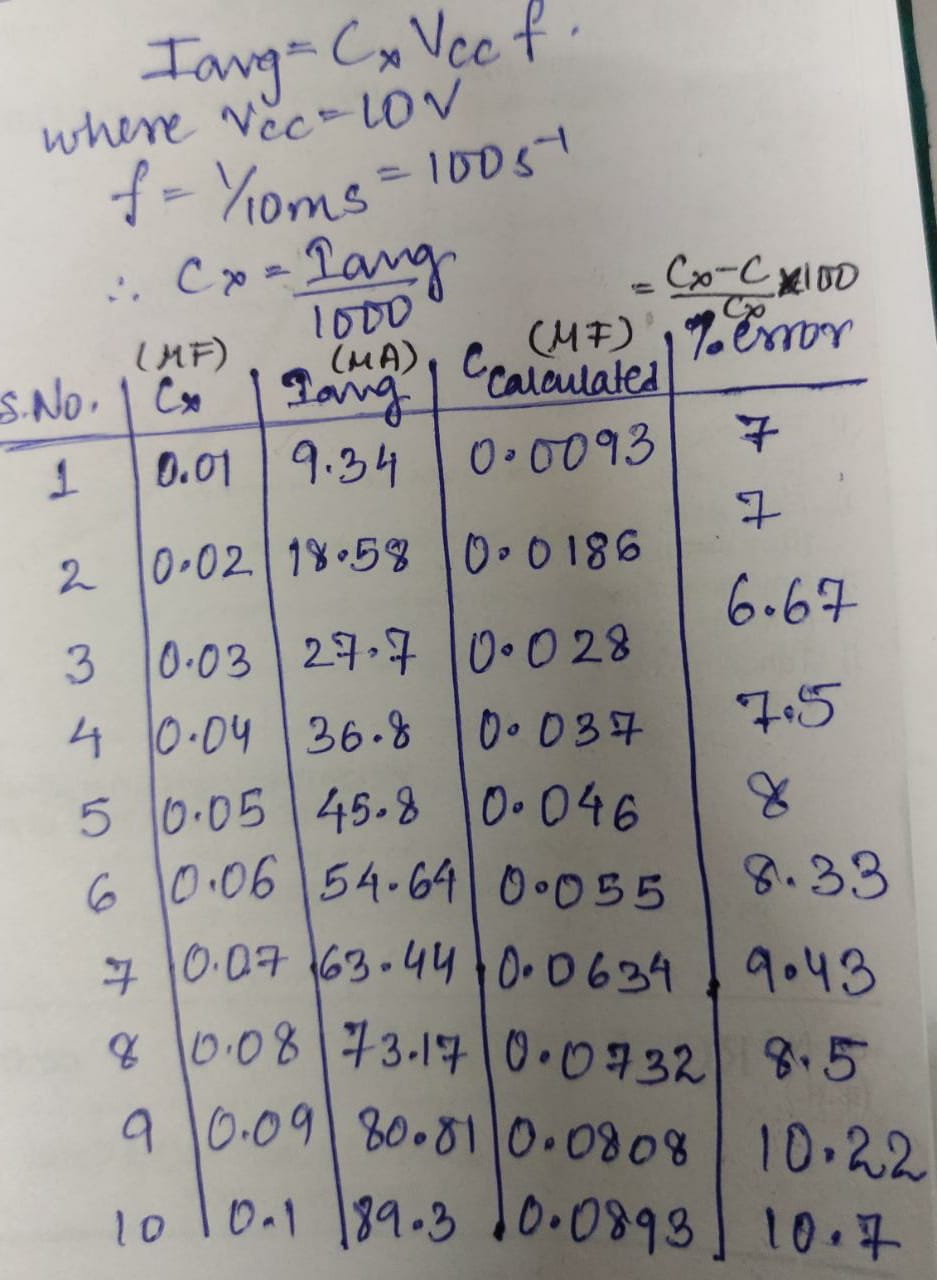 Iavg = Cx Vcc f.
where Vcc = 10V
f = 1/10ms = 100 s⁻¹
∴ Cx = Iavg/1000
= Cx-C/Cx ×100
S.No. | (µF) Cx | (µA) Iavg | C calculated (µF) | % error
1 | 0.01 | 9.34 | 0.0093 | 7
2 | 0.02 | 18.58 | 0.0186 | 7
3 | 0.03 | 27.7 | 0.028 | 6.67
4 | 0.04 | 36.8 | 0.037 | 7.5
5 | 0.05 | 45.8 | 0.046 | 8
6 | 0.06 | 54.64 | 0.055 | 8.33
7 | 0.07 | 63.44 | 0.0634 | 9.43
8 | 0.08 | 73.17 | 0.0732 | 8.5
9 | 0.09 | 80.81 | 0.0808 | 10.22
10 | 0.1 | 89.3 | 0.0893 | 10.7